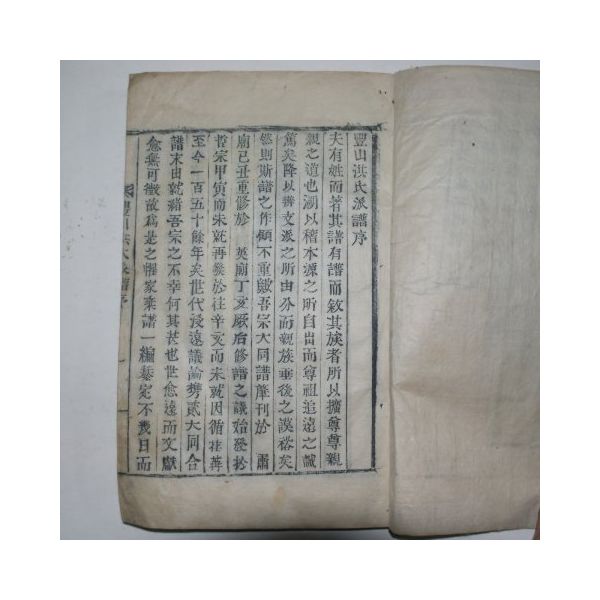 豐山洪氏派譜序
夫有姓而著其譜有譜而敘其族者所以擴尊尊親
親之道也溯以稽本源之所自出而尊祖追遠之誠
篤矣降以辨支派之所由分而親族垂後之謨裕矣
然則斯譜之作顧不重歟吾宗大同譜肇刊於 肅
廟己丑重修於 英廟丁亥厥后修譜之議始發於
哲宗甲寅而未就再發於往辛亥而未就因循荏苒
至今一百五十餘年矣世代寖遠議論携貳大同合
譜末由就緖吾宗之不幸何其甚也世愈遠而文獻
愈無可徵故爲是之懼家乘譜一編纂定不幾日而
豐山洪氏派譜序